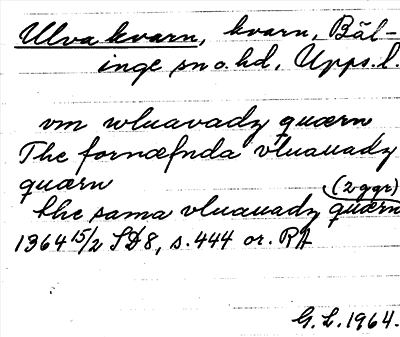 Ulva kvarn, kvarn, Bäl-
inge sn o. hd, Upps. l.
vm wluavadz quærn
The fornæfnda vluauadz
quærn
(2 ggr)
the sama vluauadz quærn
1364 15/2 SD 8, s. 444 or. RA
G. L. 1964.